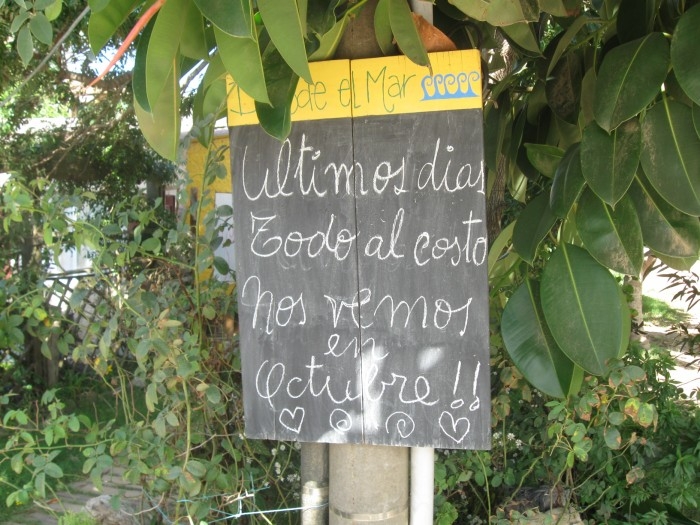 Desde el Mar
Ultimos dias
Todo al costo
Nos vemos
en
Octubre !!